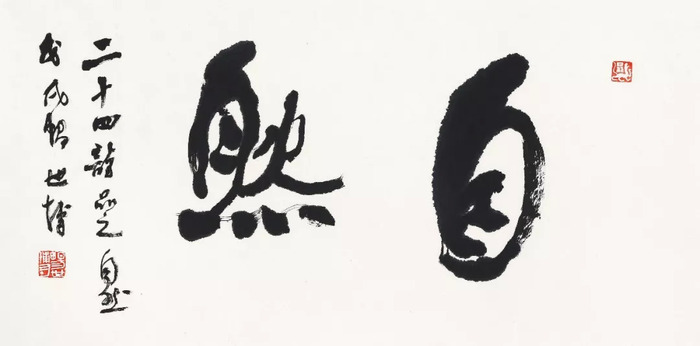 自然
二十四詩品之自然
戊戌世博